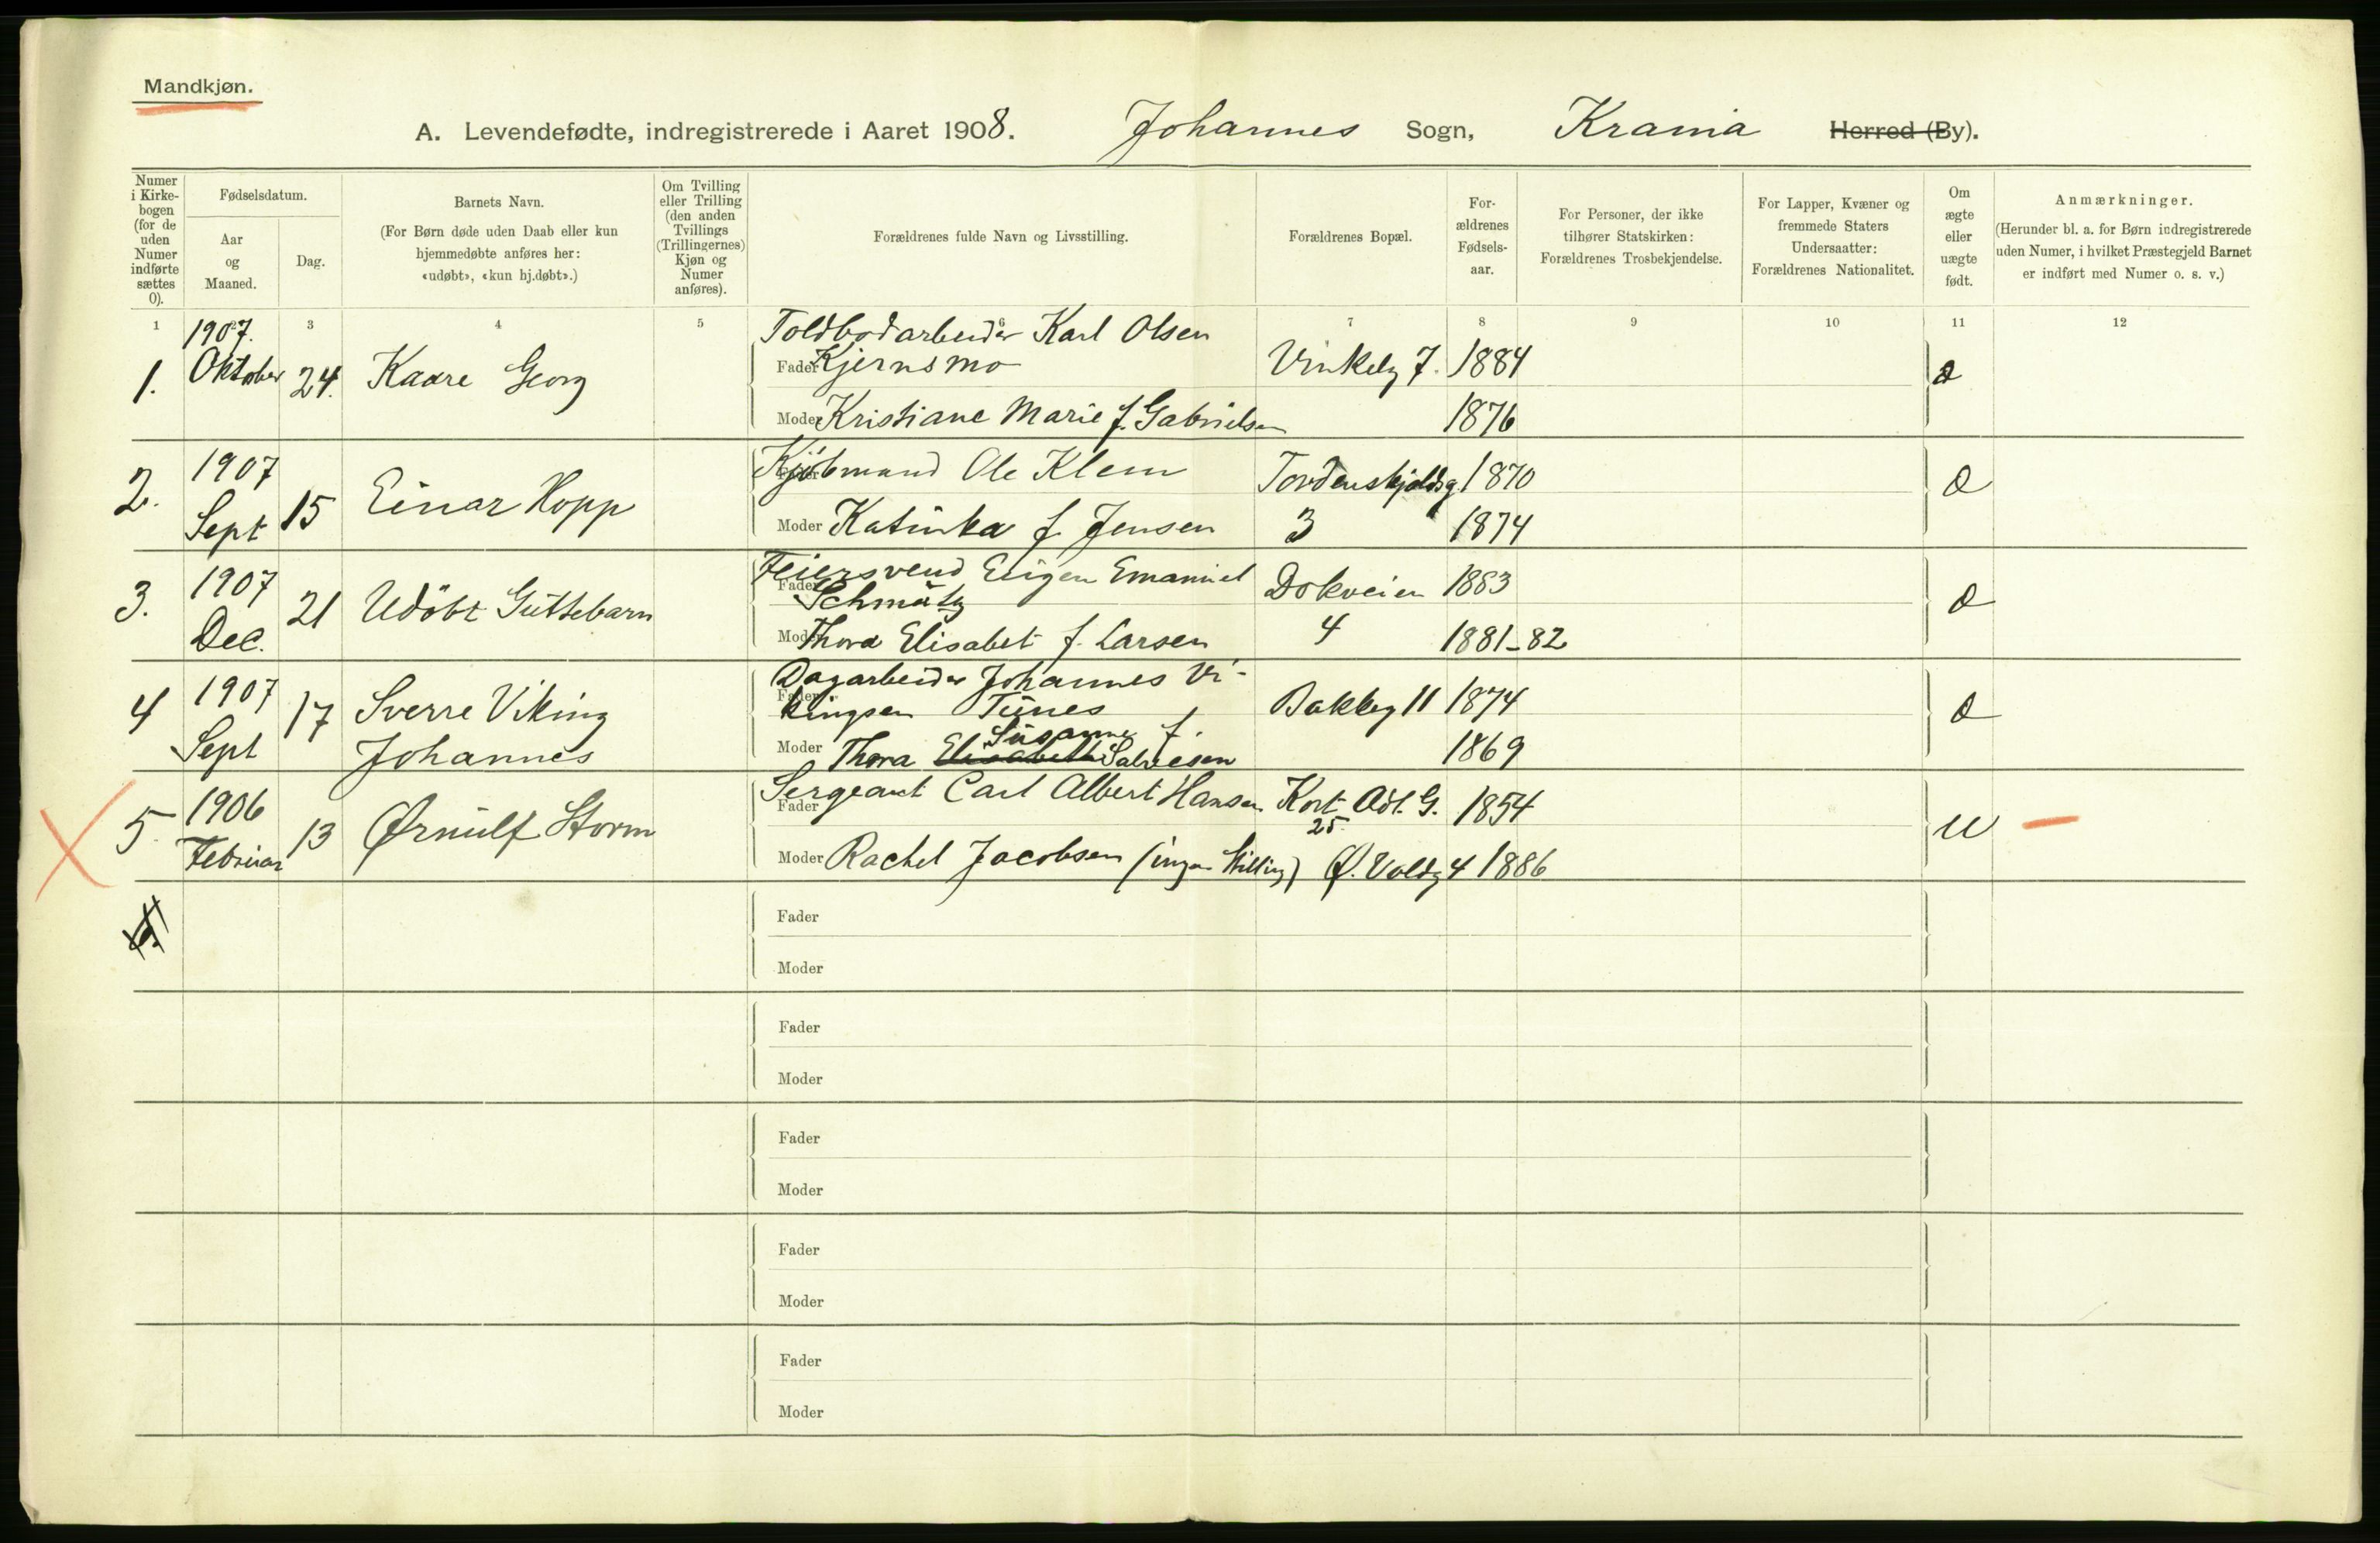 Mandkjøn.
A. Levendefødte, indregistrerede i Aaret 1908. Johannes Sogn, Krania Herred (By).
Numer i Kirkebogen (for de uden Numer indførte sættes 0).
Fødselsdatum.
Aar og Maaned.
Dag.
Barnets Navn.
(For Børn døde uden Daab eller kun
hjemmedøbte anføres her:
«udøbt», «kun hj.døbt».)
Om Tvilling
eller Trilling
(den anden
Tvillings
(Trillingernes)
Kjøn og
Numer
anføres).
Forældrenes fulde Navn og Livsstilling.
Forældrenes Bopæl.
For-
ældrenes
Fødsels-
aar.
For Personer, der ikke
tilhører Statskirken:
Forældrenes Trosbekjendelse.
For Lapper, Kvæner og
fremmede Staters
Undersaatter:
Forældrenes Nationalitet.
Om
ægte
eller
uægte
født.
Anmærkninger.
(Herunder bl. a. for Børn indregistrerede
uden Numer, i hvilket Præstegjeld Barnet
er indført med Numer o. s. v.)
1 2 3 4 5 6 7 8 9 10 11 12
1. 1907. Oktober 24. Kaare Georg
Toldbodarbeider Karl Olsen
Fader Kjernsmo Vinkelg 7. 1884
Moder Kristiane Marie f. Gabrielsen 1876
2. 1907 Sept 15 Einar Kopp
Fader Kjøbmand Ole Klem Tordenskjoldsg. 1870
Moder Katinka f. Jensen 3 1874
3. 1907 Dec. 21 Udöbt Guttebarn
Fader Feiersvend Eugen Emanuel
Schmütz Dokveien 1883
Moder Thora Elisabet f. Larsen 4 1881-82
4 1907 Sept 17 Sverre Viking
Johannes
Fader Dagarbeider Johannes Vi-
kingsen Tunes Bakkeg 11 1874
Susanne f.
Moder Thora Elisabeth Salvesen 1869
5. 1906 Februar 13 Ørnulf Storm
Fader Sergeant Carl Albert Hansen Kort Adl. G. 25. 1854
Moder Rachel Jacobsen (ingen Stilling) Ø. Voldg 4 1886
u
Fader
Moder
Fader
Moder
Fader
Moder
Fader
Moder
Fader
Moder